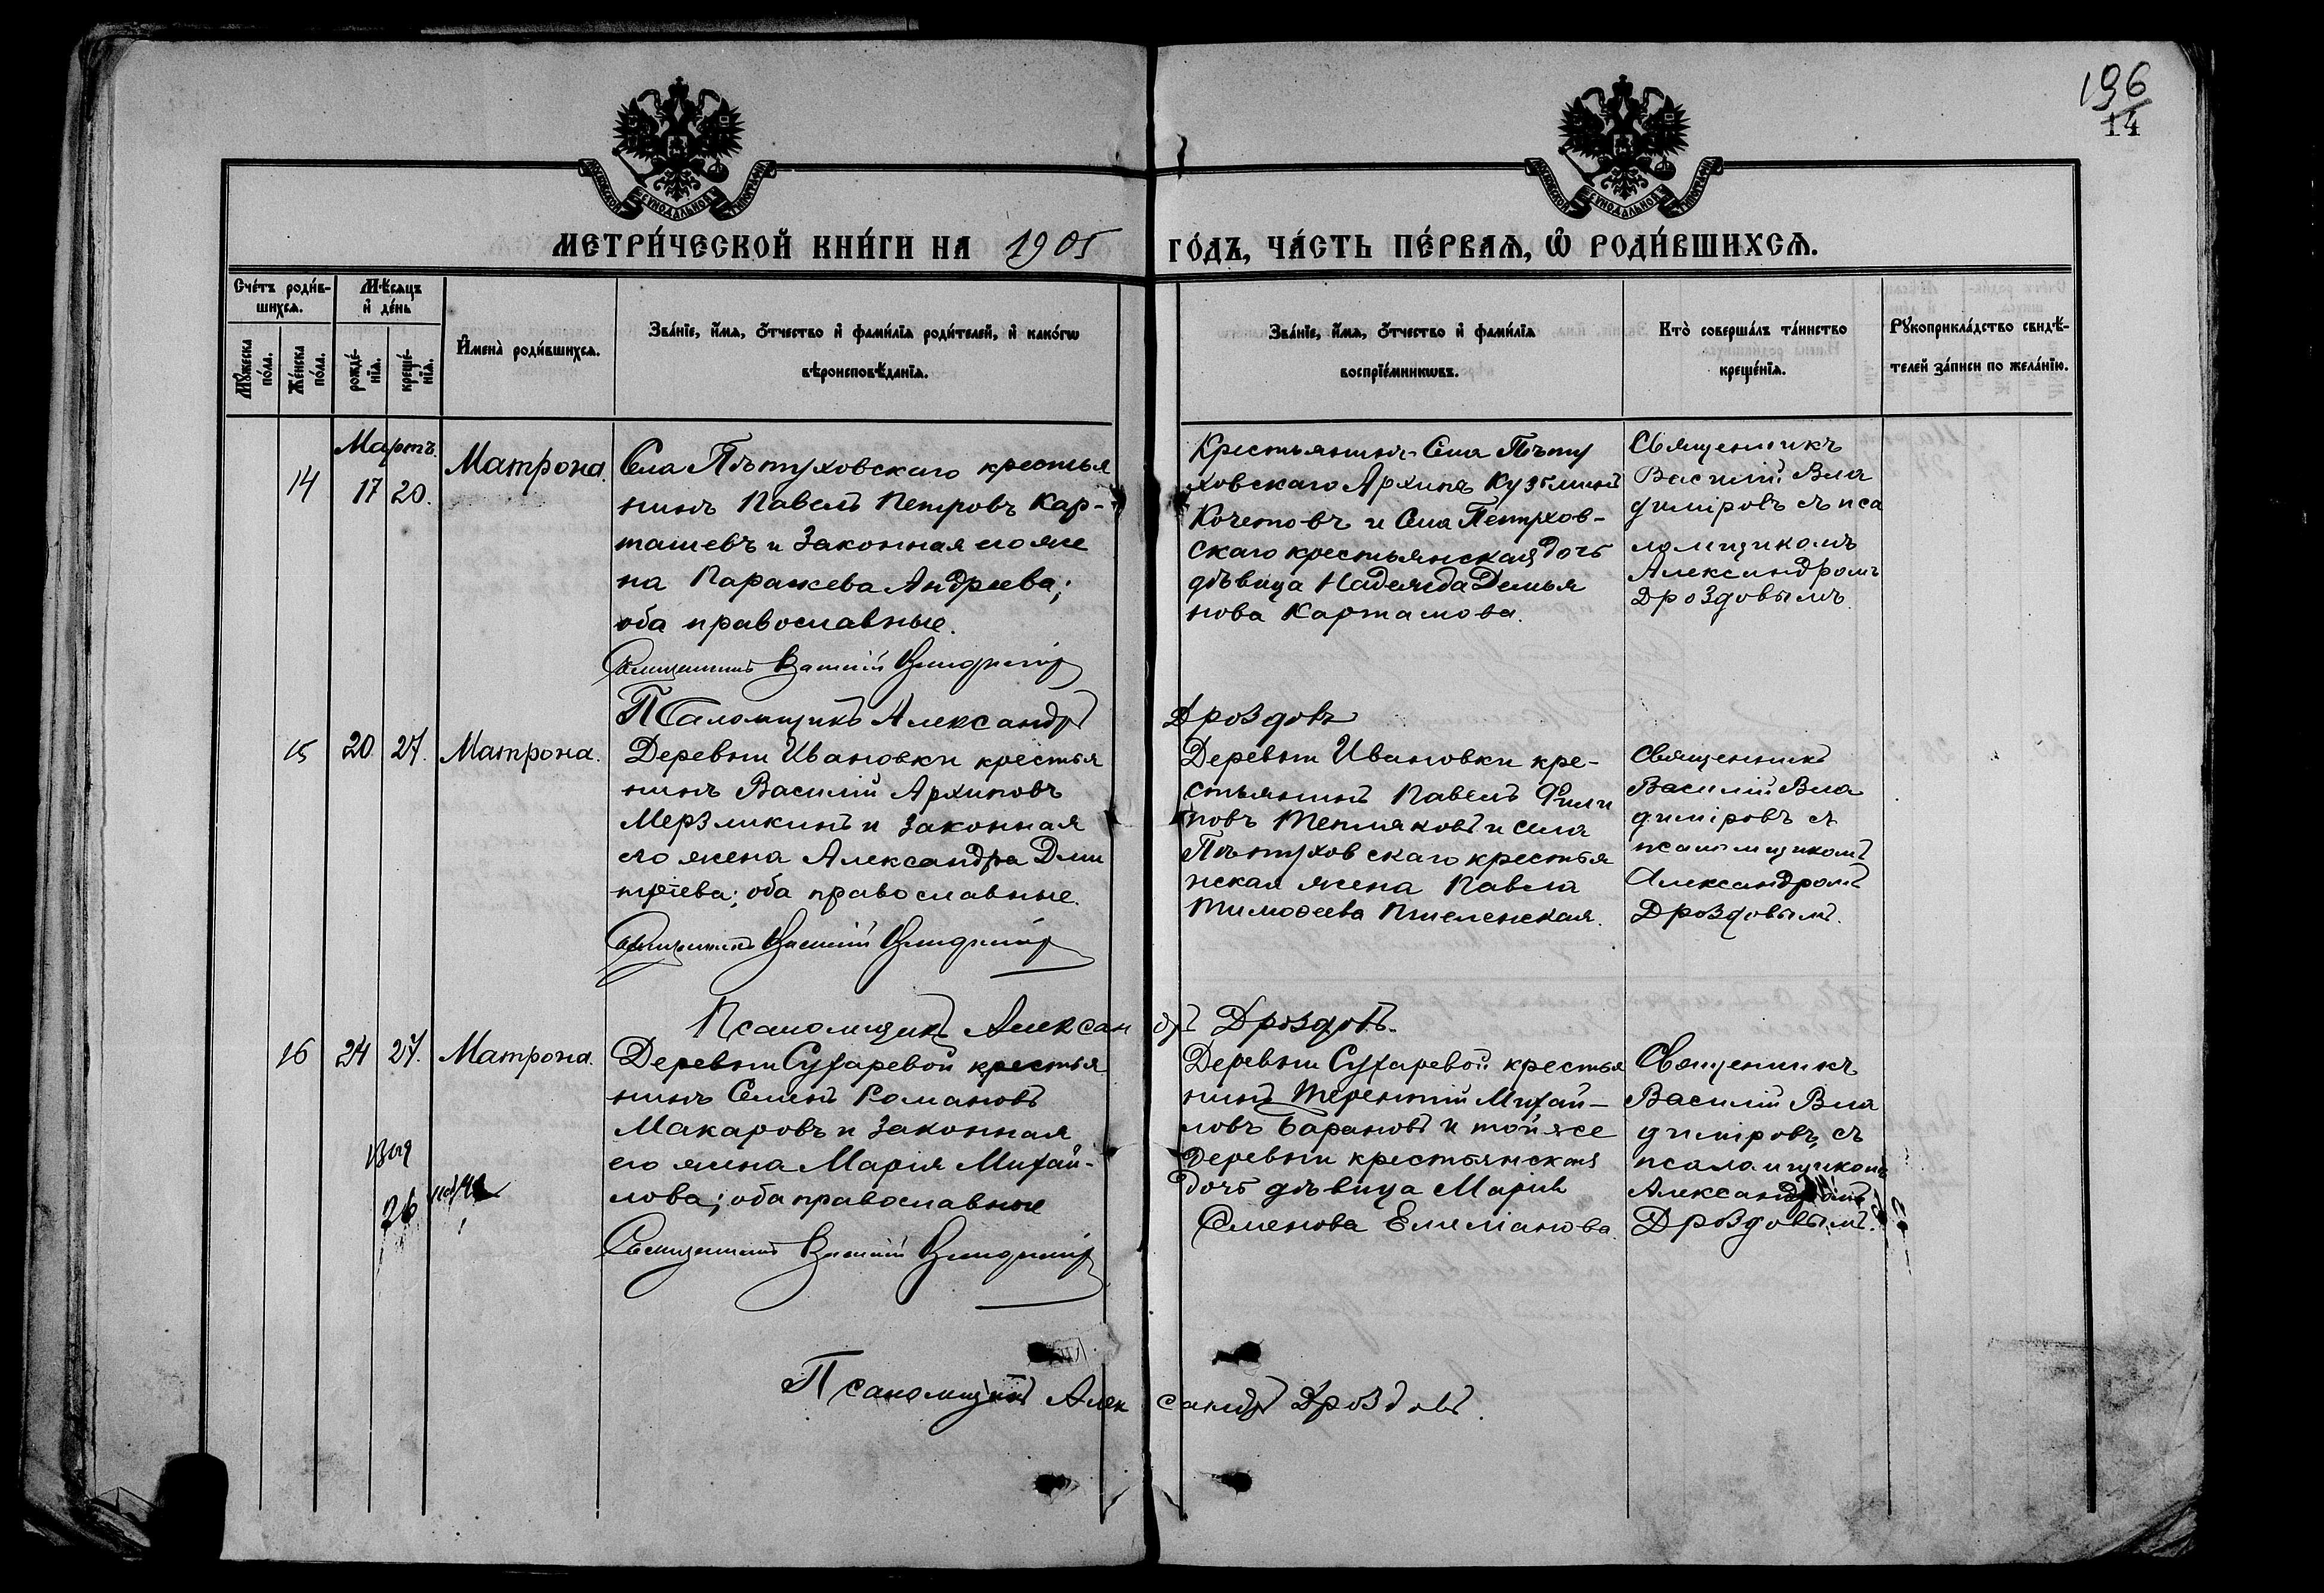 196
14
МЕТРИ́ЧЕСКОЙ КНИ́ГИ НА 1905 ГО́ДЪ, ЧА́СТЬ ПЕ́РВАѦ, Ѿ РОДИ́ВШИХСѦ.
Счётъ роди́в-
шихсѧ.
Мꙋ́жеска по́ла.
Же́нска по́ла.
Мѣ́сяцъ
и҆ де́нь
рожде́-
нїѧ.
креще́-
нїѧ.
И҆мена̀ роди́вшихсѧ.
Зва́нїе, и҆́мѧ, ѻ҆́тчество и҆ фамѝлїѧ роди́телей, и҆ како́гѡ
вѣроисповѣ́данїѧ.
Зва́нїе, и҆́мѧ, ѻ҆́тчество и҆ фамѝлїѧ
воспрїе́мникѡвъ.
Кто̀ соверша́лъ та́инство
креще́нїѧ.
Рꙋкоприкла́дство свидѣ́-
телей за́писи по жела́нїю.
Мартъ.
14 17 20.
Матрона.
Села Пѣтуховскаго крестья
нинъ Павелъ Петровъ Кар-
ташевъ и законная его же
на Параскева Андреева;
оба православные.
Священникъ Василій Владиміровъ
Псаломщикъ Александръ Дроздовъ
Крестьянинъ Села Пѣту
ховскаго Архипъ Кузьминъ
Кочетовъ и Села Петухов-
скаго крестьянская дочь
дѣвица Надежда Демья
нова Карташова.
Священникъ
Василій Вла
диміровъ съ пса
ломщикомъ
Александромъ
Дроздовымъ.
15 20 27. Матрона.
Деревни Ивановки крестья
нинъ Василій Архиповъ
Мерзликинъ и законная
его жена Александра Дми
тріева; оба православные.
Священникъ Василій Владиміровъ
Псаломщикъ Александръ Дроздовъ.
Деревни Ивановки кре-
стьянинъ Павелъ Фили
повъ Тепляковъ и села
Пѣтуховскаго крестья
нская жена Павла
Тимоѳеева
Священникъ
Василій Вла
диміровъ съ
псаломщикомъ
Александромъ
Дроздовымъ.
16 24 27. Матрона.
Деревни Сухаревой крестья
нинъ Семенъ Романовъ
Макаровъ и законная
его жена Марія Михай-
лова; оба православные
Священникъ Василій Владиміровъ
Псаломщикъ Александръ Дроздовъ.
Деревни Сухаревой крестья
нинъ Терентій Михай-
ловъ Барановъ и той же
деревни крестьянская
дочь дѣвица Марія
Семенова Емеліанова.
Священникъ
Василій Вла
диміровъ, съ
псаломщикомъ
Александромъ
Дроздовымъ.
26